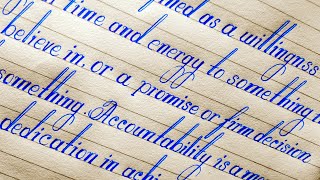 ned as a willingnss
time and energy to something
believe in, or a promise or firm decision
something. Accountability is a
dedication in achi